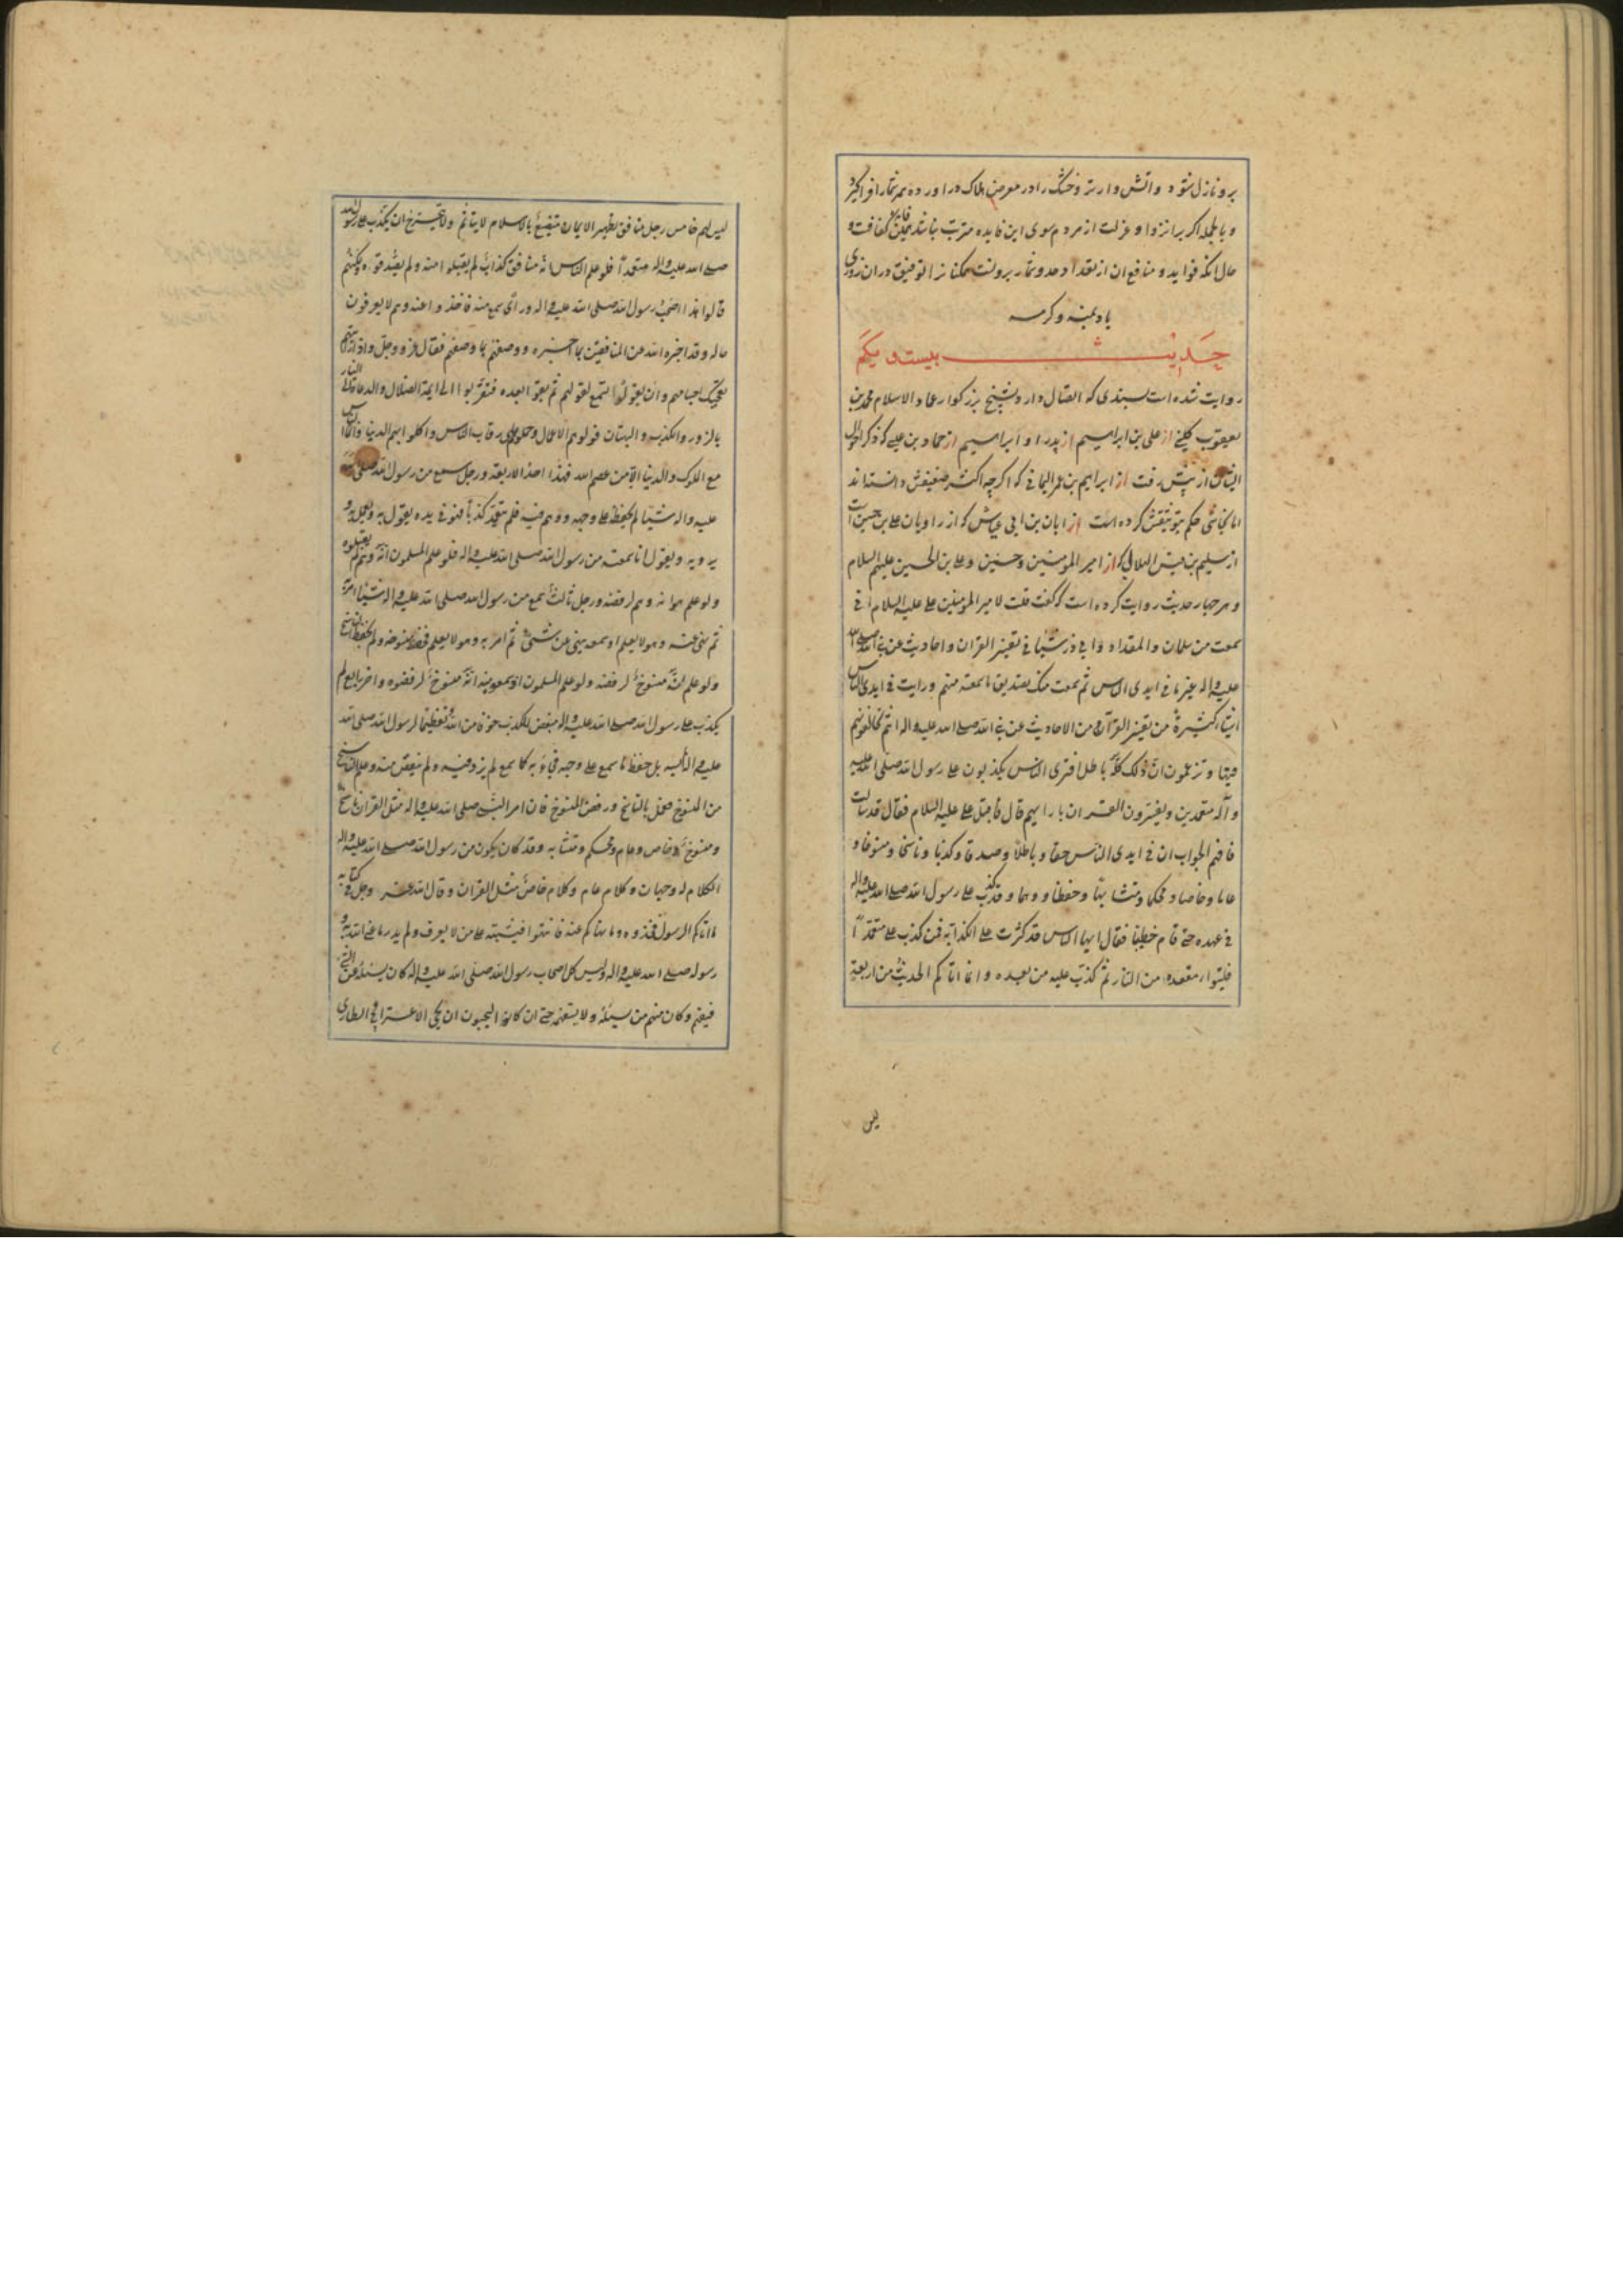 برو نازل شود و اتش وار تر و خشک را در معرض هلاک در اورده همه را فرا کیرد
و بالجمله اکر بر انزوا و عزلت از مردم سوی این فایده مترتب نباشد همین کفافت و
حال انکه فواید و منافع ان از تعداد و حد و شمار برونست همکنانرا توفیق دران روزی
باد بمنه و کرمه
حدیث بیست و یکم
روایت شده است بسندی که اتصال دارد بشیخ بزرکوار عماد الاسلام محمد بن
یعقوب کلینی از علی بن ابراهیم از پدر او ابراهیم از حماد بن عیسی که ذکر احوال
ایشان از پیش رفت از ابراهیم بن عمر الیمانی که اکرچه اکثر ضعیفش دانسته اند
اما نجاشی حکم بتوثیقش کرده است از ابان بن ابی عیاش که از راویان علی بن حسین است
از سلیم بن قیس الهلالی که از امیر المومنین و حسنین و علی بن الحسین علیهم السلام
و هر چهار حدیث روایت کرده است که گفت قلت لامیر المومنین علی علیه السلام انی
سمعت من سلمان و المقداد و ابی ذر شیئا فی تفسیر القران و احادیث عن نبی الله صلی الله
علیه و اله غیر ما فی ایدی الناس ثم سمعت منک تصدیق ما سمعته منهم و رایت فی ایدی الناس
اشیاء کثیرة من تفسیر القرآن و من الاحادیث عن نبی الله صلی الله علیه و اله انتم تخالفونهم
فیها و تزعمون ان ذلک کله باطل افتری الناس یکذبون علی رسول الله صلی الله علیه
و آله متعمدین و یفسرون القران بارائهم قال فاقبل علی علیه السلام فقال قد سالت
فافهم الجواب ان فی ایدی الناس حقا و باطلا و صدقا و کذبا و ناسخا و منسوخا و
عاما و خاصا و محکما و متشابها و حفظا و وهما و قد کذب علی رسول الله صلی الله علیه و اله
فی عهده حتی قام خطیبا فقال ایها الناس قد کثرت علی الکذابة فمن کذب علی متعمدا
فلیتبوا مقعده من النار ثم کذب علیه من بعده و انما اتاکم الحدیث من اربعة
لیس
لیس لهم خامس رجل منافق یظهر الایمان متصنع بالاسلام لا یتاثم ولا یتحرج ان یکذب علی رسول الله
صلی الله علیه و اله متعمدا فلو علم الناس انه منافق کذاب لم یقبلوا منه و لم یصدقوه و لکنهم
قالوا هذا صحب رسول الله صلی الله علیه و اله و رای و سمع منه فاخذوا عنه و هم لا یعرفون
حاله و قد اخبره الله عن المنافقین بما اخبره و وصفهم بما وصفهم فقال عز و جل و اذا رایتهم
تعجبک اجسامهم و ان یقولوا تسمع لقولهم ثم بقوا بعده فتقربوا الی ایمة الضلال و الدعاة الی النار
بالزور و الکذب و البهتان فولوهم الاعمال و حملوهم علی رقاب الناس و اکلوا بهم الدنیا و انما الناس
مع الملوک و الدنیا الا من عصم الله فهذا احد الاربعة و رجل سمع من رسول الله صلی الله
علیه و اله شیئا لم یحفظه علی وجهه و وهم فیه فلم یتعمد کذبا فهو فی یده یقول به و یعمل به و
یرویه و یقول انا سمعته من رسول الله صلی الله علیه و اله فلو علم المسلمون انه وهم لم یقبلوه
ولو علم هو انه وهم لرفضه و رجل ثالث سمع من رسول الله صلی الله علیه و اله شیئا امر به
ثم نهی عنه و هو لا یعلم او سمعه ینهی عن شیئ ثم امر به و هو لا یعلم فحفظ منسوخه و لم یحفظ الناسخ
ولو علم انه منسوخ لرفضه ولو علم المسلمون اذ سمعوه منه انه منسوخ لرفضوه و اخر رابع لم
یکذب علی رسول الله صلی الله علیه و اله مبغض للکذب خوفا من الله و تعظیما لرسول الله صلی الله
علیه و اله لم ینسه بل حفظ ما سمع علی وجهه فجاء به کما سمع لم یزد فیه و لم ینقص منه و علم الناسخ
من المنسوخ فعمل بالناسخ و رفض المنسوخ فان امر النبی صلی الله علیه و اله مثل القران ناسخ
و منسوخ و خاص و عام و محکم و متشابه و قد کان یکون من رسول الله صلی الله علیه و اله
الکلام له وجهان و کلام عام و کلام خاص مثل القران و قال الله عز و جل فی کتابه
ما اتاکم الرسول فخذوه و ما نهاکم عنه فانتهوا فیشتبه علی من لا یعرف و لم یدر ما عنی الله به و
رسوله صلی الله علیه و اله و لیس کل اصحاب رسول الله صلی الله علیه و اله کان یسئله عن الشی
فیفهم و کان منهم من یسئله و لا یستفهمه حتی ان کانوا لیحبون ان یجی الاعرابی و الطاری